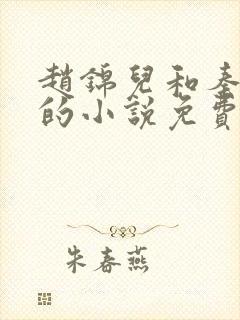 趙錦兒和秦
的小說免費
朱春燕